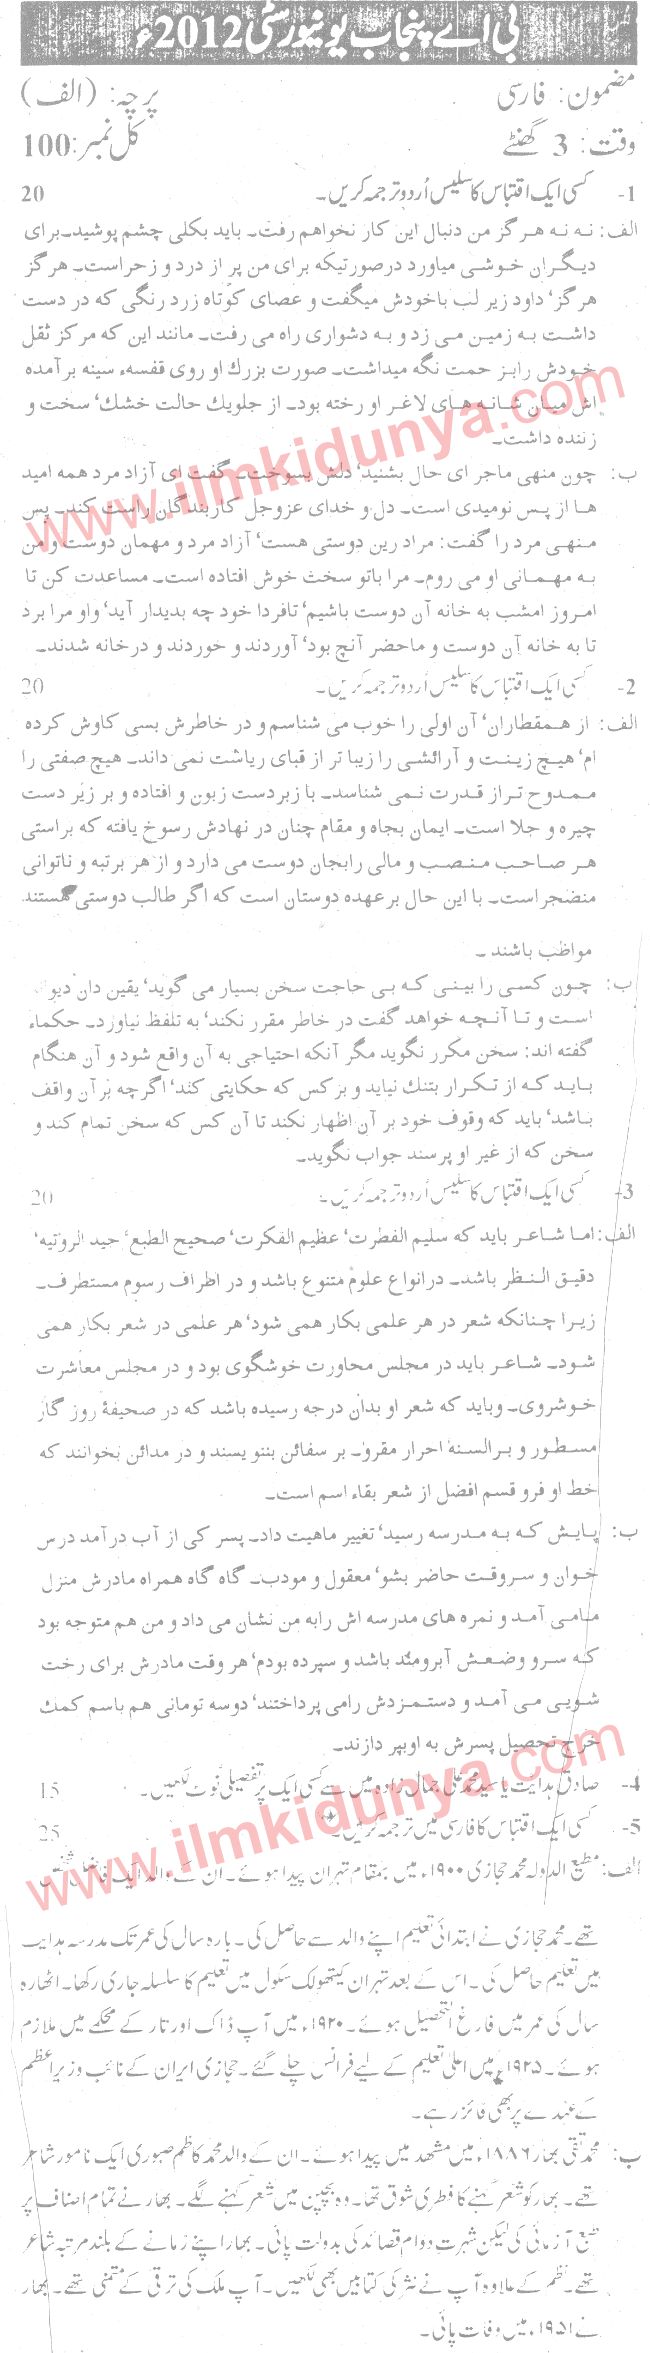 بی اے پنجاب یونیورسٹی 2012ء
مضمون: فارسی
پرچہ: (الف)
وقت: 3 گھنٹے
کل نمبر: 100
1- کسی ایک اقتباس کا سلیس اُردو ترجمہ کریں۔ 20
الف: نہ نہ هر گز من دنبال این کار نخواهم رفت۔ باید بکلی چشم پوشید۔ برای
دیگران خوشی میاورد درصورتیکه برای من پر از درد و زحر است۔ هر گز
هر گز' داود زیر لب باخودش میگفت و عصای کوتاه زرد رنگی که در دست
داشت به زمین می زد و به دشواری راه می رفت۔ مانند این که مرکز ثقل
خودش رابز حمت نگه میداشت۔ صورت بزرك او روی قفسهء سینه بر آمده
اش میان شانه های لاغر او رخته بود۔ از جلویك حالت خشك' سخت و
زننده داشت۔
ب: چون منهی ماجر ای حال بشنید' دلش بسوخت۔ گفت ای آزاد مرد همه امید
ها از پس نومیدی است۔ دل و خدای عزوجل کاربندگان راست کند۔ پس
منهی مرد را گفت: مراد رین دوستی هست' آزاد مرد و مهمان دوست و من
به مهمانی او می روم۔ مرا باتو سخت خوش افتاده است۔ مساعدت کن تا
امروز امشب به خانه آن دوست باشیم' تافردا خود چه بدیدار آید' واو مرا برد
تا به خانه آن دوست و ماحضر آنچ بود' آوردند و خوردند و درخانه شدند۔
2- کسی ایک اقتباس کا سلیس اُردو ترجمہ کریں۔ 20
الف: از همقطاران' آن اولی را خوب می شناسم و در خاطرش بسی کاوش کرده
ام' هیچ زینت و آرائشی را زیبا تر از قبای ریاست نمی داند۔ هیچ صفتی را
ممدوح تراز قدرت نمی شناسد۔ با زبردست زبون و افتاده و بر زیر دست
چیره و جلا است۔ ایمان بجاه و مقام چنان در نهادش رسوخ یافته که براستی
هر صاحب منصب و مالی رابجان دوست می دارد و از هر برتبه و ناتوانی
منضجر است۔ با این حال بر عهده دوستان است که اگر طالب دوستی هستند
مواظب باشند۔
ب: چون کسی را بینی که بی حاجت سخن بسیار می گوید' یقین دان
است و تا آنچه خواهد گفت در خاطر مقرر نکند' به تلفظ نیاورد۔ حکماء
گفته اند: سخن مکرر نگوید مگر آنکه احتیاجی به آن واقع شود و آن هنگام
باید که از تکرار بتنك نیاید و برکس که حکایتی کند' اگرچه بر آن واقف
باشد' باید که وقوف خود بر آن اظهار نکند تا آن کس که سخن تمام کند و
سخن که از غیر او پرسند جواب نگوید۔
3- کسی ایک اقتباس کا سلیس اُردو ترجمہ کریں۔ 20
الف: اما شاعر باید که سلیم الفطرت' عظیم الفکرت' صحیح الطبع' جید الروتیه'
دقیق النظر باشد۔ درانواع علوم متنوع باشد و در اطراف رسوم مستطرف۔
زیرا چنانکه شعر در هر علمی بکار همی شود' هر علمی در شعر بکار همی
شود۔ شاعر باید در مجلس محاورت خوشگوی بود و در مجلس معاشرت
خوشروی۔ وباید که شعر او بدان درجه رسیده باشد که در صحیفهٔ روز گار
مسطور و بر السنهٔ احرار مقرو۔ بر سفائن بنویسند و در مدائن بخوانند که
خط او فرو قسم افضل از شعر بقاء اسم است۔
ب: پایش که به مدرسه رسید' تغییر ماهیت داد۔ پسر کی از آب درآمد درس
خوان و سروقت حاضر بشو' معقول و مودب۔ گاه گاه همراه مادرش منزل
مامی آمد و نمره های مدرسه اش رابه من نشان می داد و من هم متوجه بود
که سرو وضعش آبرومند باشد و سپرده بودم' هر وقت مادرش برای رخت
شویی می آمد و دستمزدش رامی پرداختند' دوسه تومانی هم باسم کمك
خرج تحصیل پسرش به اوبپر دازند۔
4- صادق ہدایت یا سید محمد علی جمال زادہ میں سے کسی ایک پر تفصیلی نوٹ لکھیں۔ 15
5- کسی ایک اقتباس کا فارسی میں ترجمہ کریں۔ 25
الف: مطیع الدولہ محمد حجازی ۱۹۰۰ء میں بمقام تہران پیدا ہوئے۔ ان کے والد ایک فاضل شخص
تھے۔ محمد حجازی نے ابتدائی تعلیم اپنے والد سے حاصل کی۔ بارہ سال کی عمر تک مدرسہ ہدایت
میں تعلیم حاصل کی۔ اس کے بعد تہران کیتھولک سکول میں تعلیم کا سلسلہ جاری رکھا۔ اٹھارہ
سال کی عمر میں فارغ التحصیل ہوئے۔ ۱۹۲۰ء میں آپ ڈاک اور تار کے محکمے میں ملازم
ہوئے۔ ۱۹۲۵ء میں اعلیٰ تعلیم کے لیے فرانس چلے گئے۔ حجازی ایران کے نائب وزیر اعظم
کے عہدے پر بھی فائز رہے۔
ب: محمد تقی بھار ۱۸۸۶ء میں مشہد میں پیدا ہوئے۔ ان کے والد محمد کاظم صبوری ایک نامور شاعر
تھے۔ بھار کو شعر کہنے کا فطری شوق تھا۔ وہ بچپن میں شعر کہنے لگے۔ بھار نے تمام اصناف پر
طبع آزمائی کی لیکن شہرت دوام قصائد کی بدولت پائی۔ بھار اپنے زمانے کے بلند مرتبہ شاعر
تھے۔ نظم کے علاوہ آپ نے نثر کی کتابیں بھی لکھیں۔ آپ ملک کی ترقی کے متمنی تھے۔ بھار
نے ۱۹۵۱ء میں وفات پائی۔
www.ilmkidunya.com
www.ilmkidunya.com